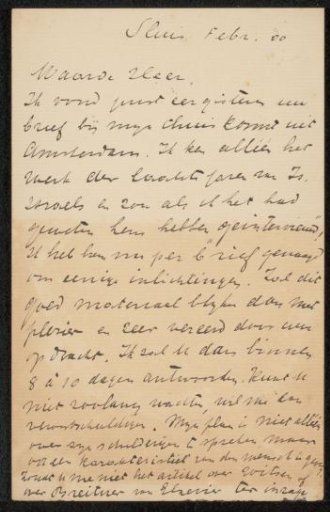 Sluis Febr. 00
Waarde Heer.
Ik vond juist eergisteren uw
brief bij mijn thuiskomst uit
Amsterdam. Ik ken alleen het
werk der laatste jaren van Is.
Israels en zou als ik het had
geweten hem hebben geinterviewd,
Ik heb hem nu per brief gevraagd
om eenige inlichtingen. Zal dit
goed materiaal blijken dan met
plezier en zeer vereerd door uw
opdracht. Ik zal U dan binnen
8 à 10 dagen antwoorden. Kunt u
niet zoolang wachten, wil mij dan
verontschuldigen. Mijn plan is niet alleen
over zijn schilderijen te spreken maar
ook een karakteristiek van den mensch te geven
Zoudt u me niet het artikel over Witsen of
over Breitner van Elsevier ter inzage